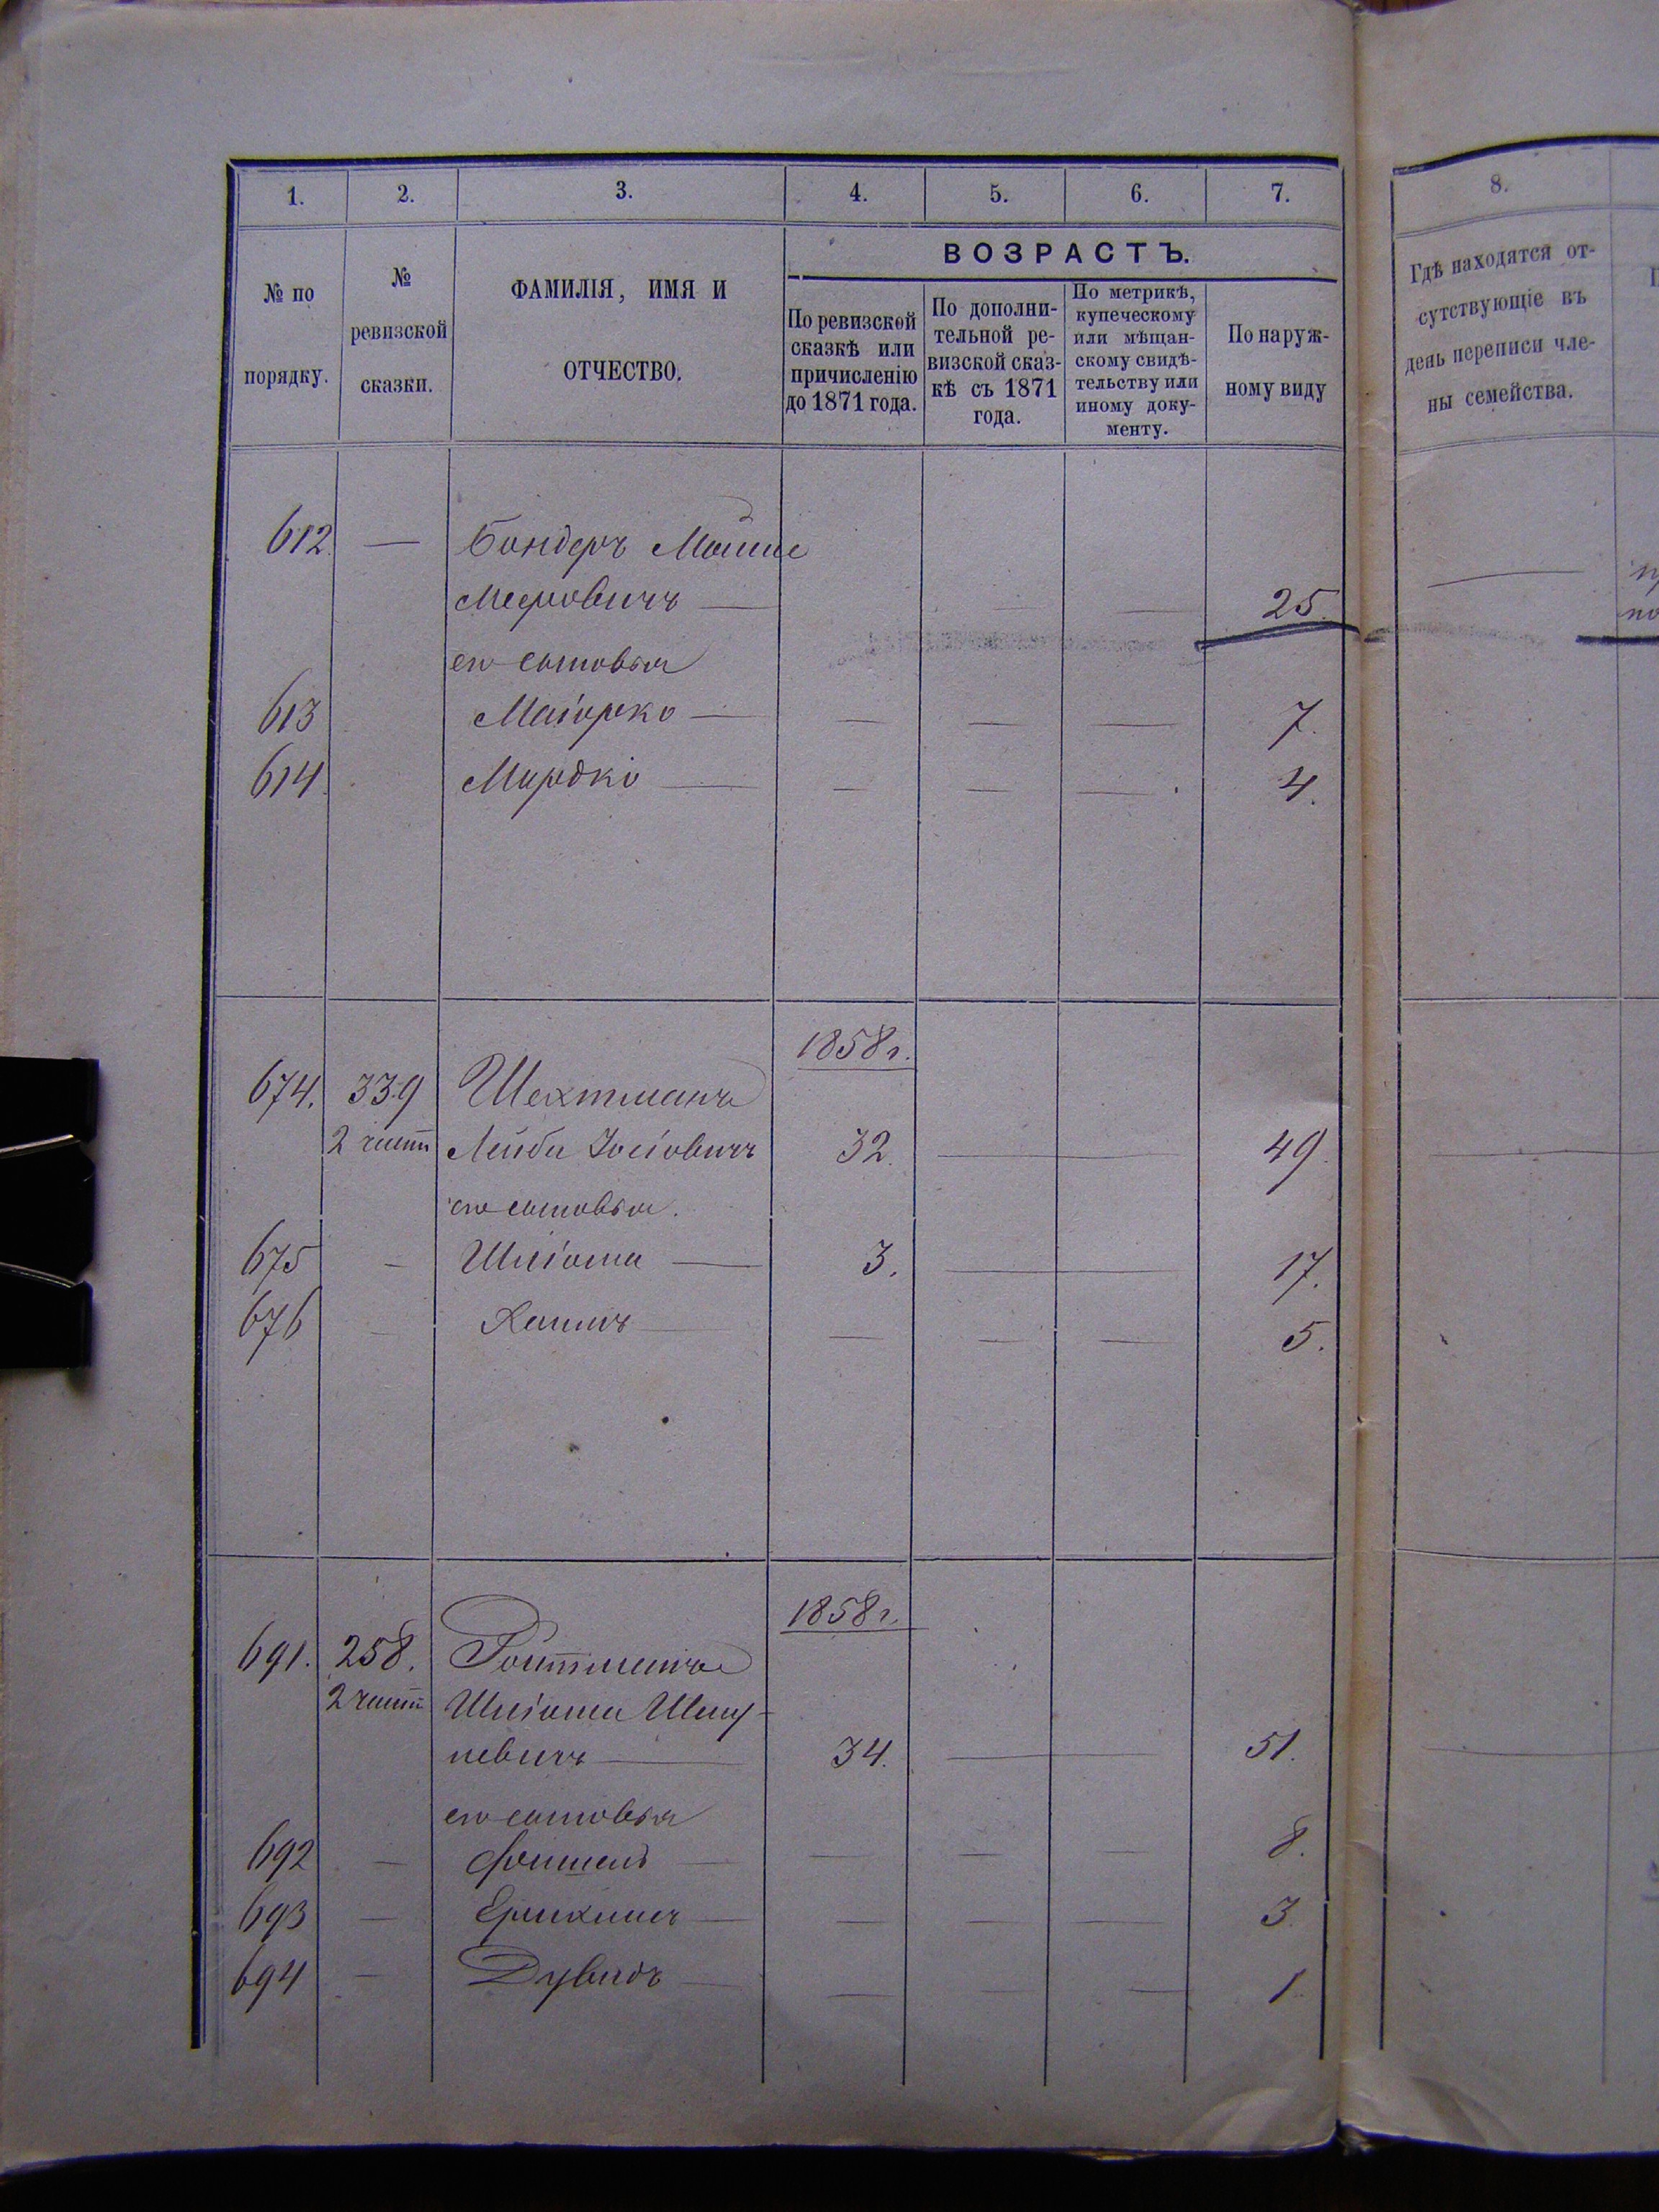 1. 2. 3. 4. 5. 6. 7. 8.
№ по порядку.
№ ревизской сказки.
ФАМИЛІЯ, ИМЯ И ОТЧЕСТВО.
ВОЗРАСТЪ.
По ревизской сказкѣ или причисленію до 1871 года.
По дополнительной ревизской сказкѣ съ 1871 года.
По метрикѣ, купеческому или мѣщанскому свидѣтельству или иному документу.
По наружному виду
Гдѣ находятся отсутствующіе въ день переписи члены семейства.
612. — Бондеръ Мошие
Мееровичъ — — — 25.
его сыновья
613 Маіорко — — — — 7.
614. Мордко — — — — 4.
1858 г.
674. 339 Шехтманъ
2 части Лейба Іосіовичъ 32. — 49.
его сыновья.
675 — Шліома — 3. — 17.
676 — Хаимъ — — — — 5.
1858 г.
691. 258. Ройтманъ
2 части Шліома Шму-
левичъ — 34. — 51.
его сыновья
692 — Фишель — — — — 8.
693 — Ерихимъ — — — — 3.
694 — Дувидъ — — — — 1.